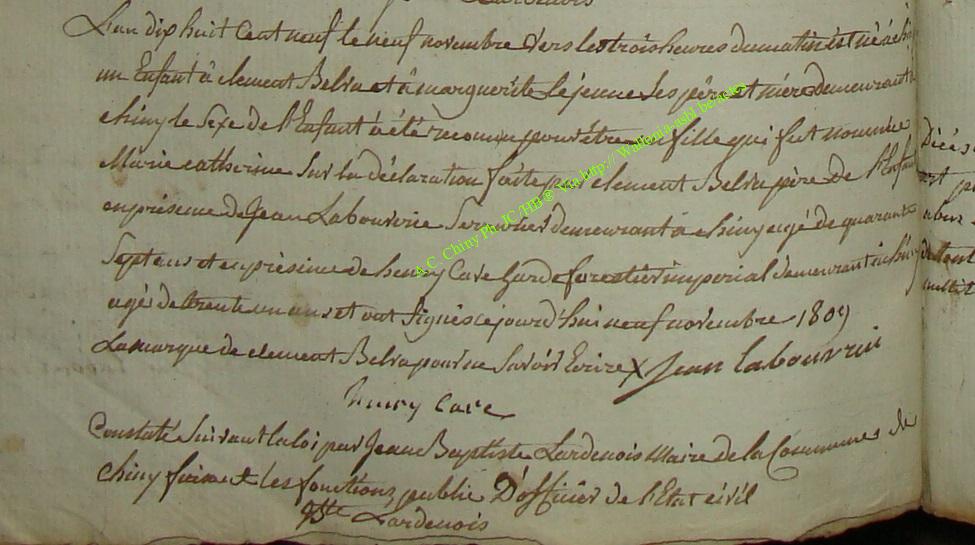 Lardenois
L'an dix huit Cent neuf le neuf novembre vers les trois heures du matin est né à chi
un Enfant à clement Belva et à marguerite Lejeune ses père et mère demeurant à
chiny le Sexe de l'Enfant à été reconnu pour être fille qui fut nommée
Marie catherine Sur la déclaration faite par clement Belva père de l'Enfant
en présence de Jean Labouverie Serrurier demeurant à chiny agé de quarante
Sept ans et en présence de henry Care Garde forestier imperial demeurant à chiny
agé de trente un ans et ont Signés ce jourd'hui neuf novembre 1809
La marque de clement Belva pour ne Savoir Ecrire X Jean labouvrui
henry Care
Constaté Suivant la loi par Jean Baptiste Lardenois Maire de la Communes de
chiny faisant les fonctions public D'officier de l'Etat civil
JBte Lardenois
A.C. Chiny Ph.JC /HB® Via http:// Waffonia-asbl